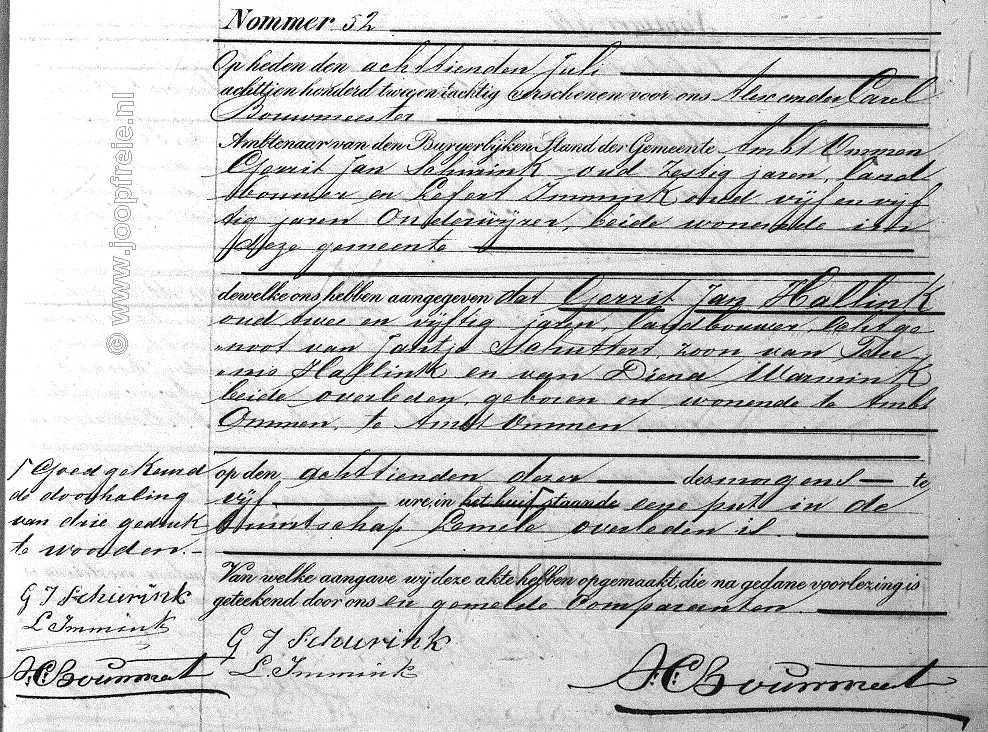 Nommer 52
Op heden den achttienden Juli
achttien honderd twee en tachtig verschenen voor ons Alexander Carel
Bouwmeester
Ambtenaar van den Burgerlijken Stand der Gemeente Ambt Ommen
Gerrit Jan Schurink oud zestig jaren, land-
bouwer en Lefert Immink oud vijf en vijf
tig jaren Onderwijzer, beide wonende in
deze gemeente
dewelke ons hebben aangegeven dat Gerrit Jan Hallink
oud twee en vijftig jaren, landbouwer, echtge
noot van Jantje Schutten, zoon van
Hallink en van Diena Warmink
beide overleden, geboren en wonende te Ambt
Ommen, te Ambt Ommen
op den achttienden dezer des morgens te
vijf ure, in het huis staande eene put in de
Buurtschap Lemele overleden is.
Van welke aangave wij deze akte hebben opgemaakt, die na gedane voorlezing is
geteekend door ons en gemelde Comparanten.
Goedgekeurd
de doorhaling
van drie gedruk
te woorden.
G J Schurink
L Immink
G J Schurink
L Immink
© www.joopfreie.nl